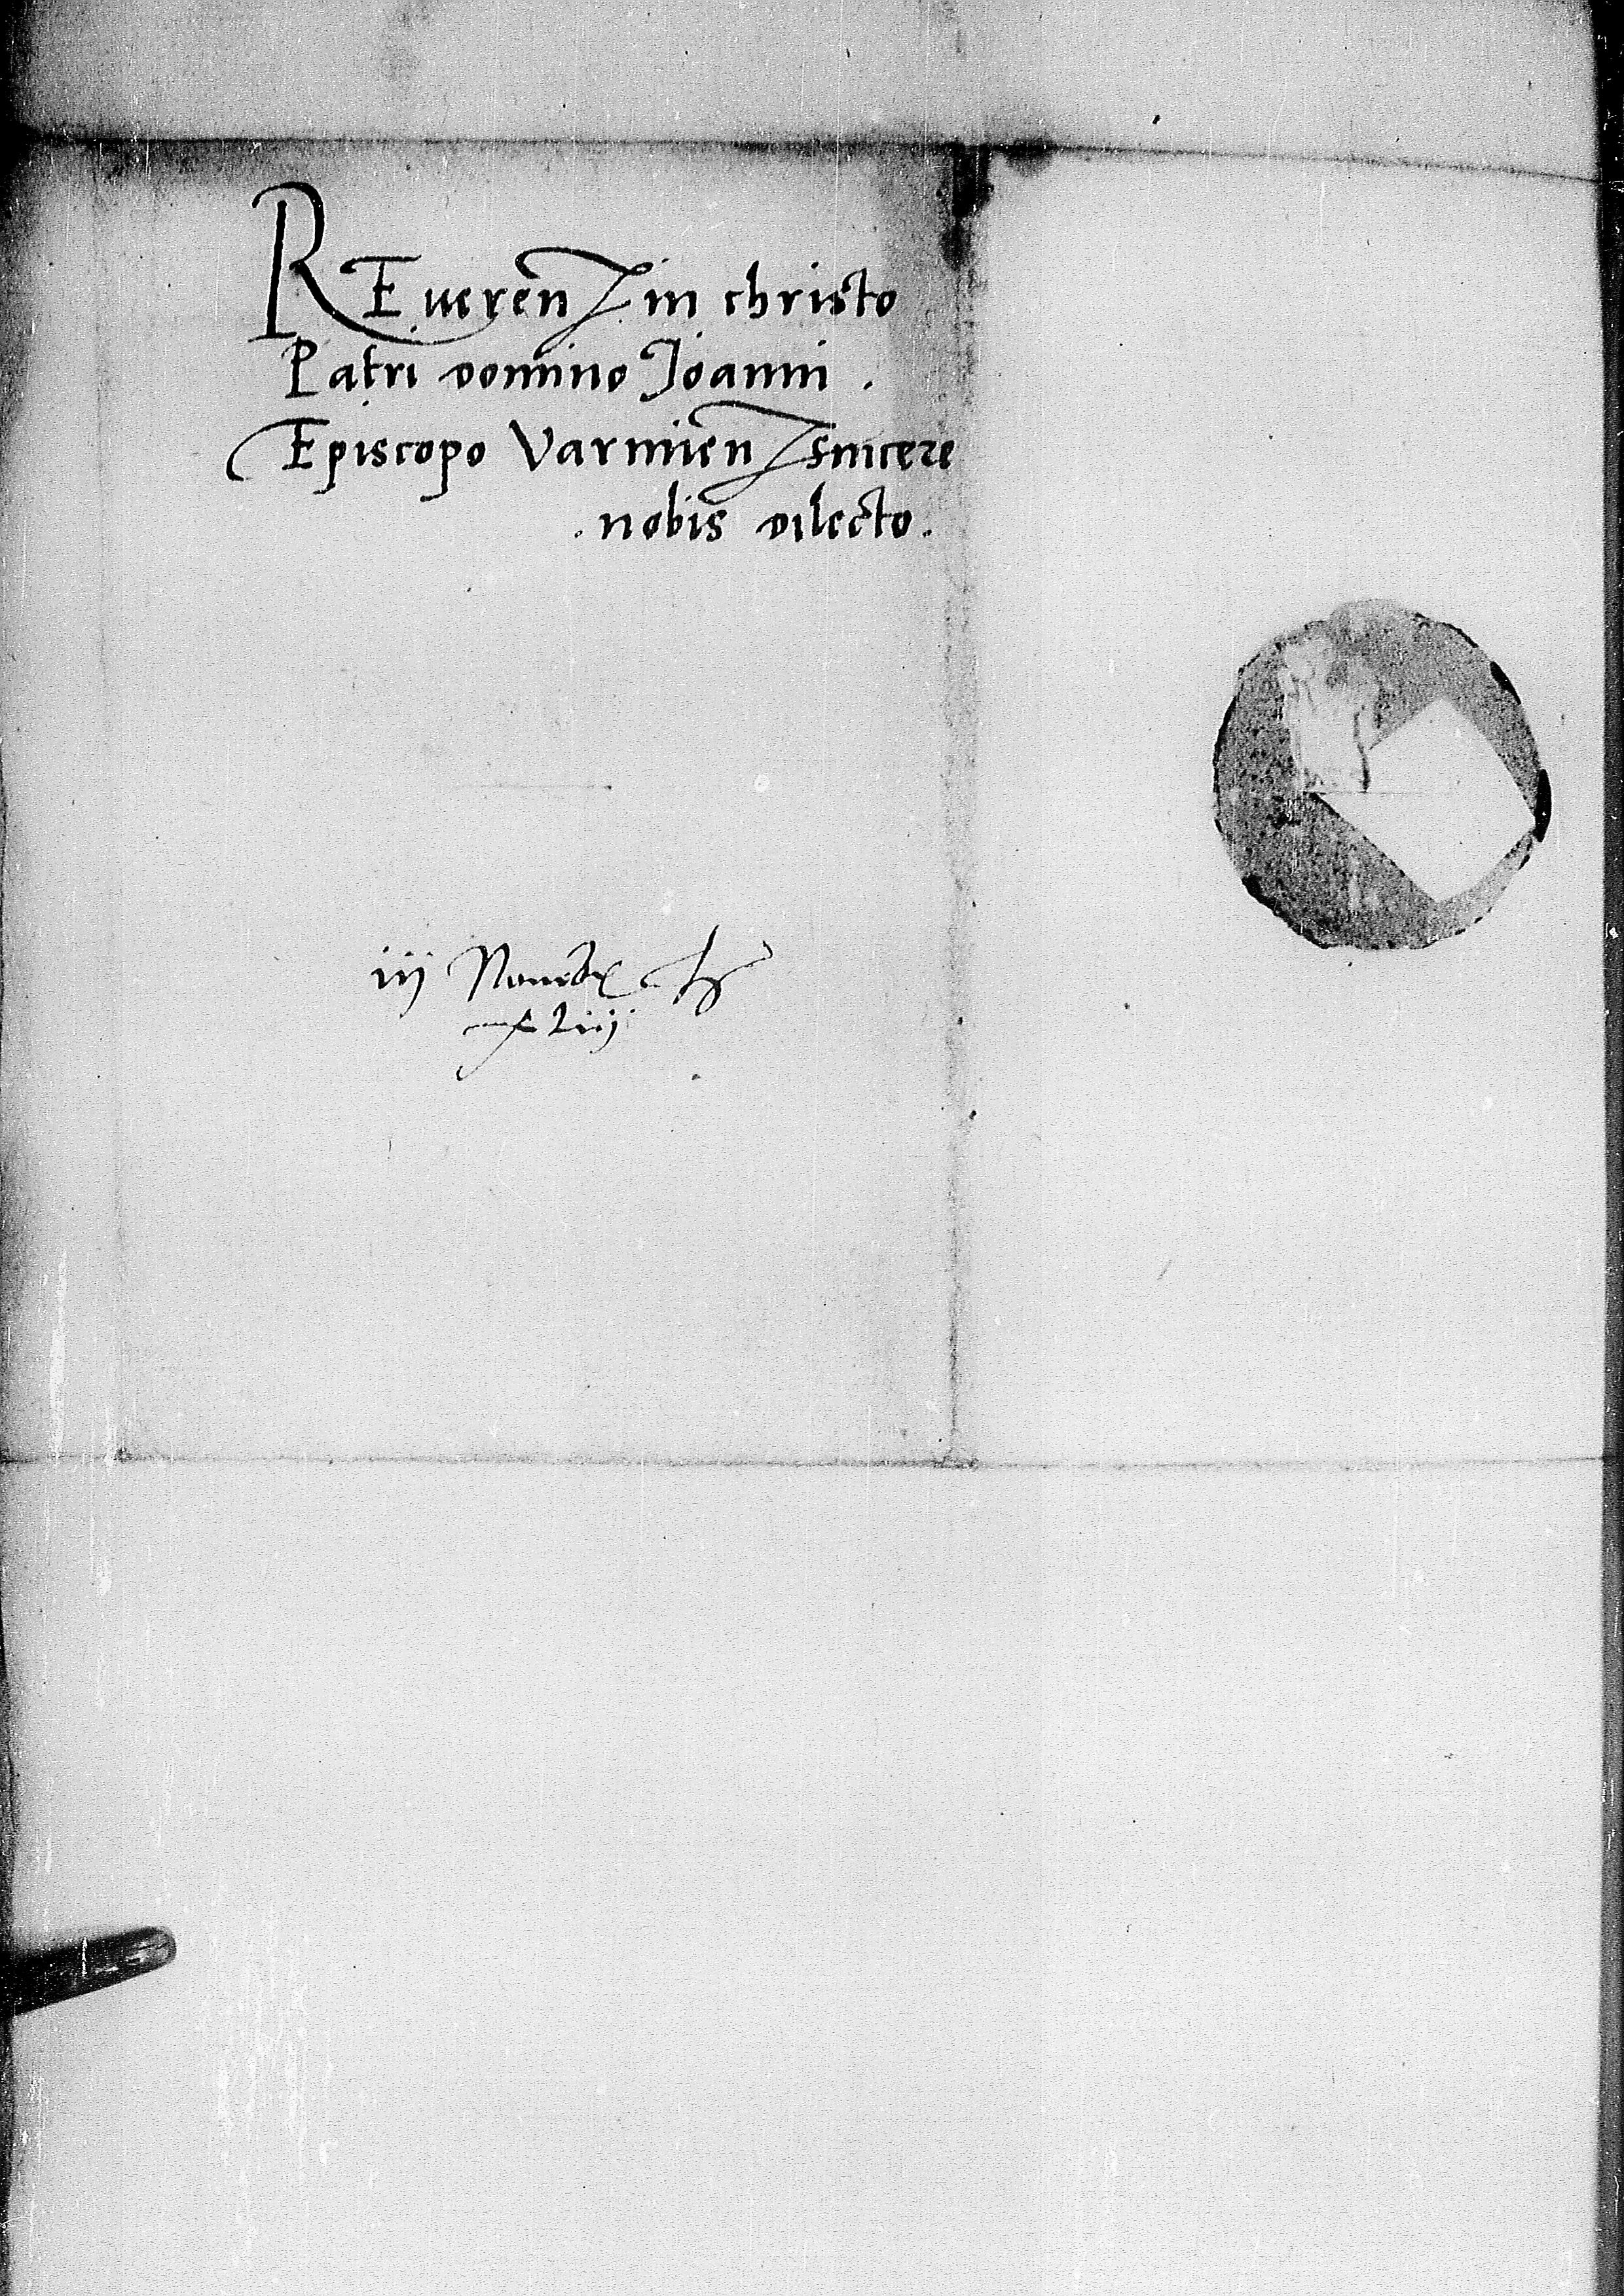 REueren in christo
Patri domino Joanni .
Episcopo Varmien sincere
. nobis dilecto .
iij Novembr
xliij